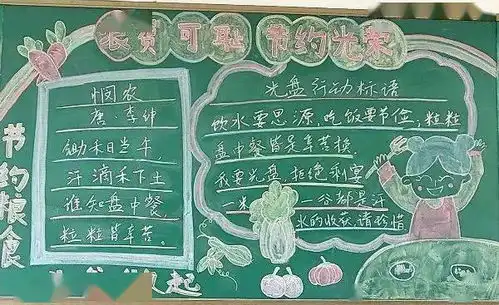 浪费可耻 节约光荣
节约粮食
悯农
唐·李绅
锄禾日当午,
汗滴禾下土
谁知盘中餐,
粒粒皆辛苦。
光盘行动标语
饮水要思源,吃饭要节俭,粒粒
盘中餐皆是辛苦换
我要光盘,拒绝剩宴
一米 一谷都是汗
水的收获,请珍惜
起